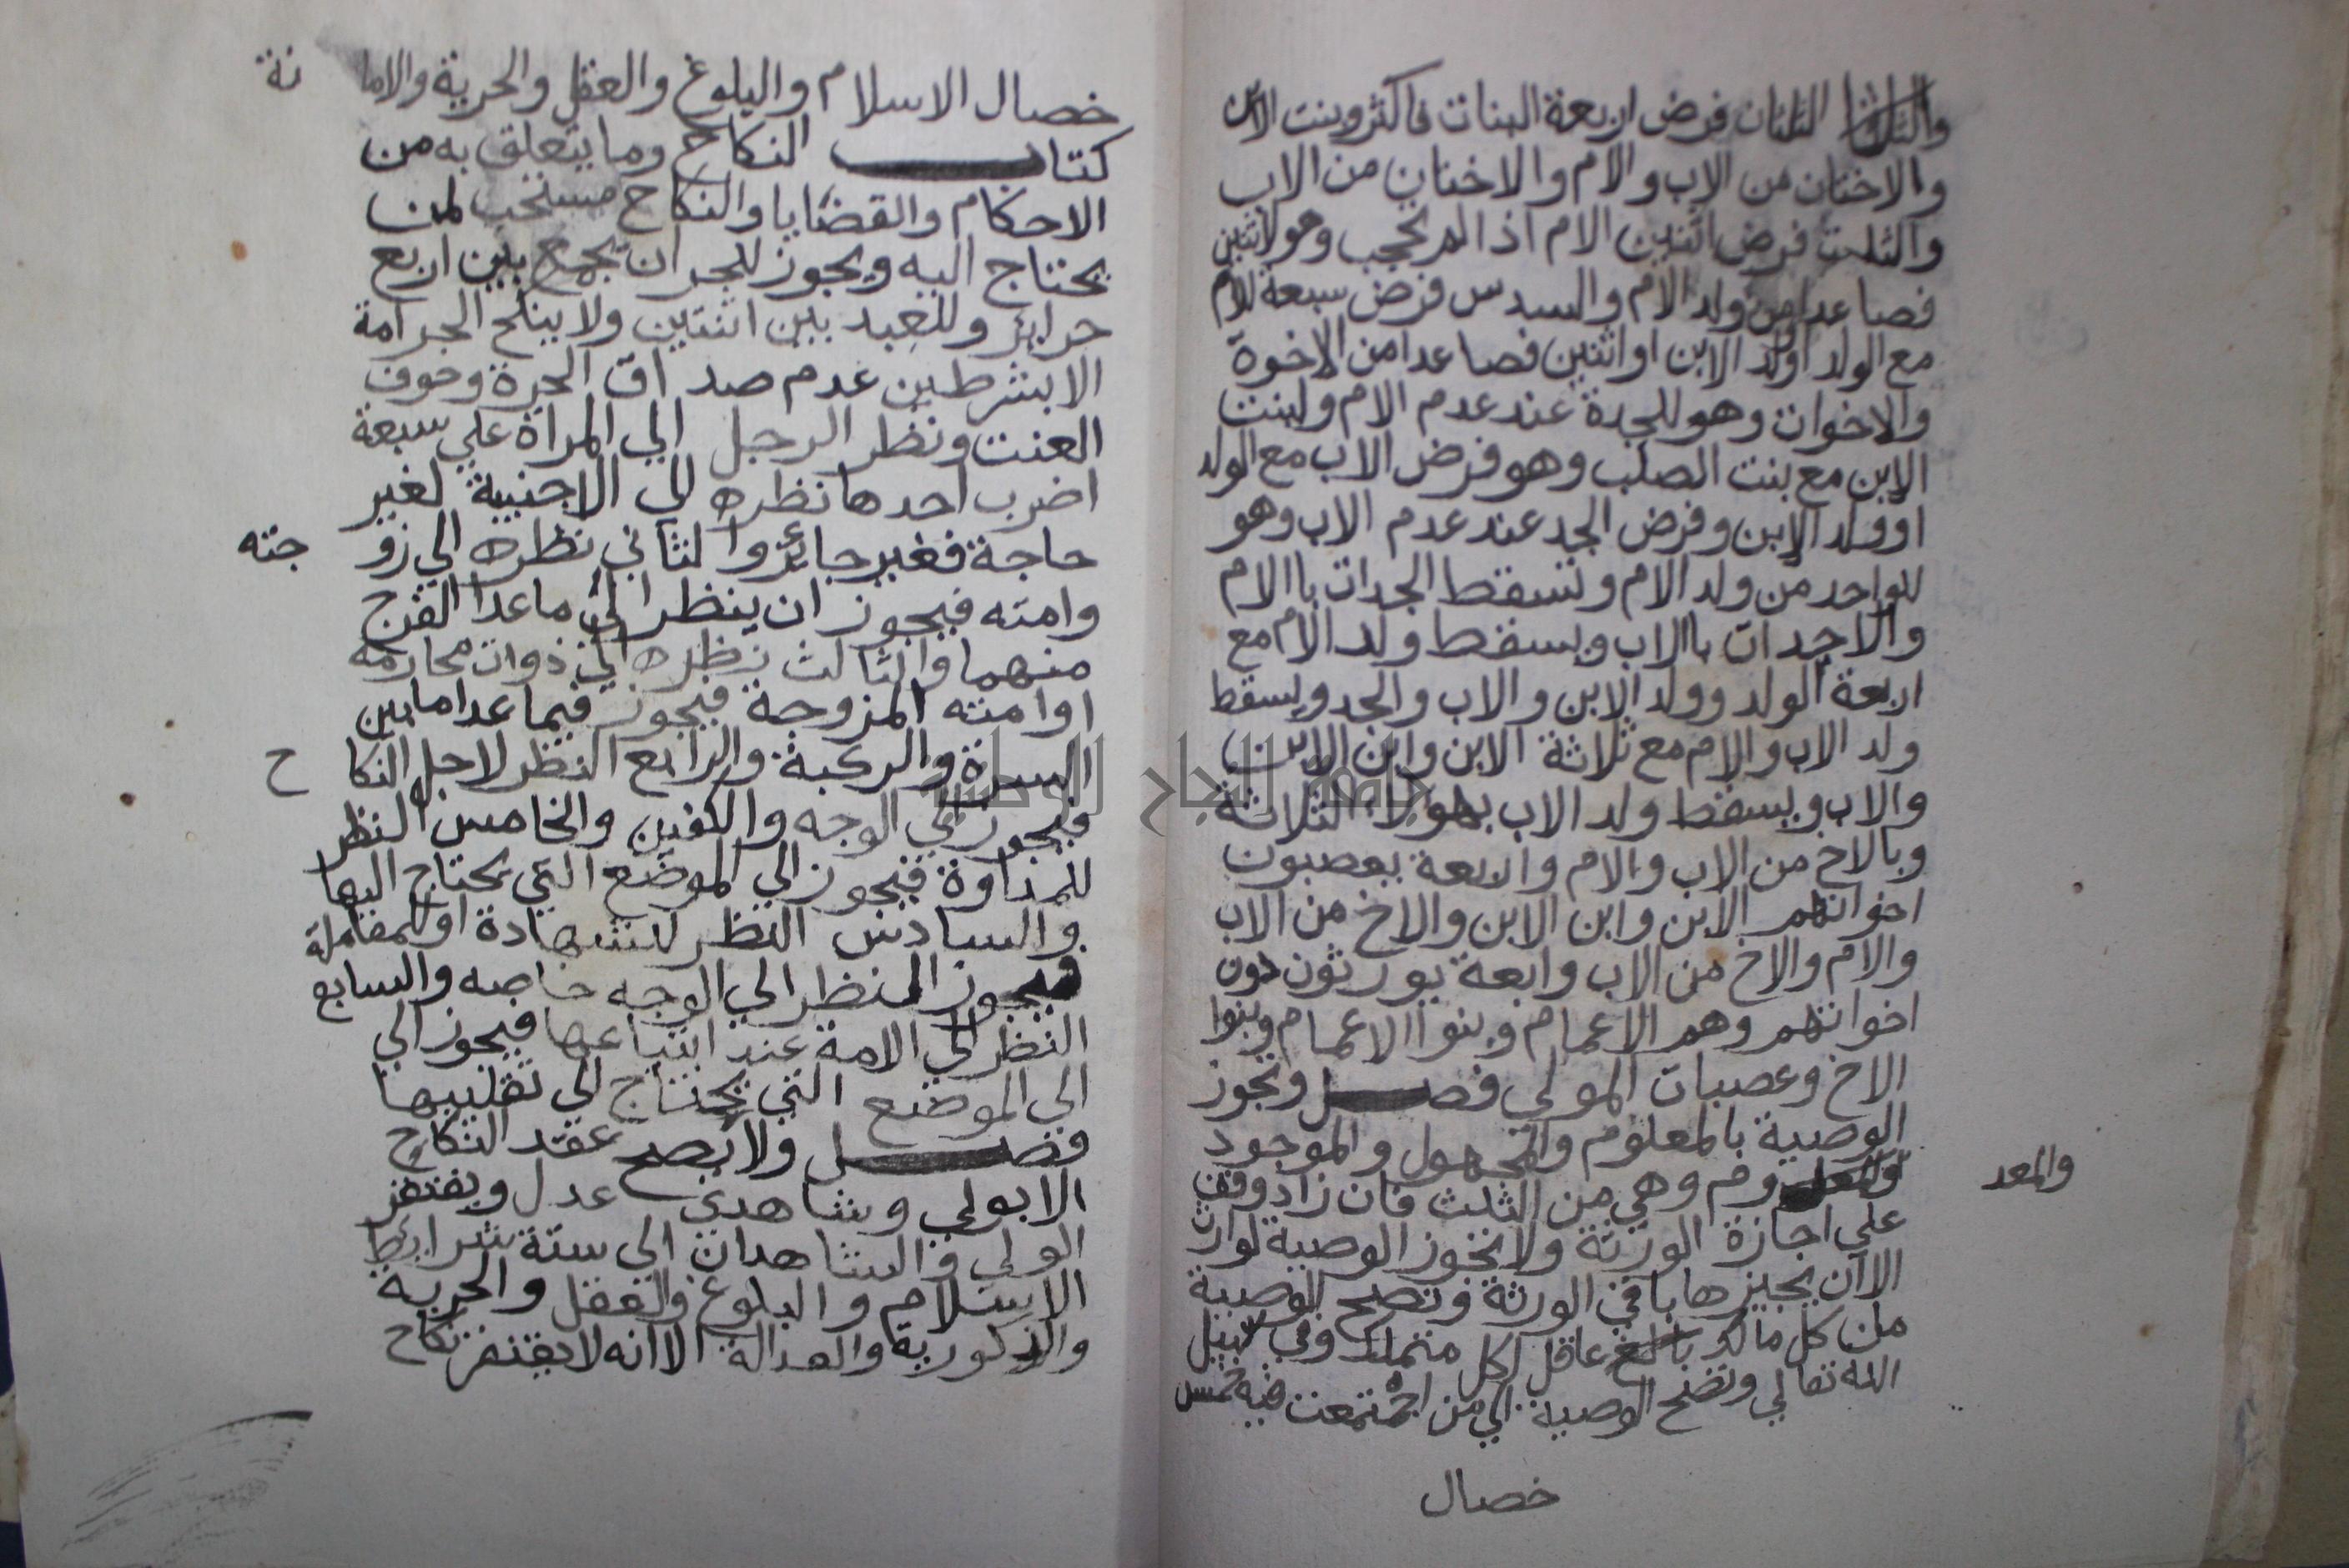 والثلثا الثلثان فرض اربعة البنات فاكثر وبنت الابن
والاختان من الاب والام والاختان من الاب
والثلث فرض اثنين الام اذا لم تحجب وهو لاثنين
فصاعدا من ولد الام والسدس فرض سبعة للام
مع الولد او ولد الابن او اثنين فصاعدا من الاخوة
والاخوات وهو للجدة عند عدم الام ولبنت
الابن مع بنت الصلب وهو فرض الاب مع الولد
او ولد الابن وفرض الجد عند عدم الاب وهو
للواحد من ولد الام وتسقط الجدات باالام
والاجدات باالاب ويسقط ولد الام مع
اربعة الولد وولد الابن والاب والجد ويسقط
ولد الاب والام مع ثلاثة الابن وابن الابن
والاب ويسقط ولد الاب بهولاء الثلاثة
وبالاخ من الاب والام واربعة يعصبون
اخواتهم الابن وابن الابن والاخ من الاب
والام والاخ من الاب واربعة يورثون دون
اخواتهم وهم الاعمام وبنوا الاعمام وبنوا
الاخ وعصبات المولي فصل وتجوز
الوصية بالمعلوم والمجهول والموجود
والمعد
وم وهي من الثلث فان زاد وقف
علي اجازة الورثة ولا تجوز الوصية لوارث
الاان يجيزها باقي الورثة وتصح الوصية
من كل مالك بالغ عاقل لكل متملك وفي سبيل
الله تعالي وتصح الوصية الي من اجتمعت فيه خمس
خصال
خصال الاسلام والبلوغ والعقل والحرية والامانة
كتاب النكاح وما يتعلق به من
الاحكام والقضايا والنكاح مستحب لمن
يحتاج اليه ويجوز للحر ان يجمع بين اربع
حراير وللعبد بين اثنتين ولا ينكح الحر امة
الا بشرطين عدم صداق الحرة وخوف
العنت ونظر الرجل الي المراة علي سبعة
اضرب احدها نظره الي الاجنبية لغير
حاجة فغير جائز والثاني نظره الي زوجته
وامته فيجوز ان ينظر الي ما عدا الفرج
منهما والثالث نظره الي ذوات محارمه
او امته المزوجة فيجوز فيما عدا ما بين
السرة والركبة والرابع النظر لاجل النكاح
فيجوز الي الوجه والكفين والخامس النظر
للمداوة فيجوز الي الموضع التي يحتاج اليها
والسادس النظر للشهادة او للمعاملة
فيجوز النظر الي الوجه خاصه والسابع
النظر الي الامة عند ابتياعها فيجوز الي
الي الموضع التي يحتاج الي تقليبها
فصل ولا يصح عقد النكاح
الا بولي وشاهدي عدل ويفتقر
الولي والشاهدان الي ستة شرائط
الاسلام والبلوغ والعقل والحرية
والذكورية والعدالة الا انه لا يفتقر نكاح
جامعة النجاح الوطنية